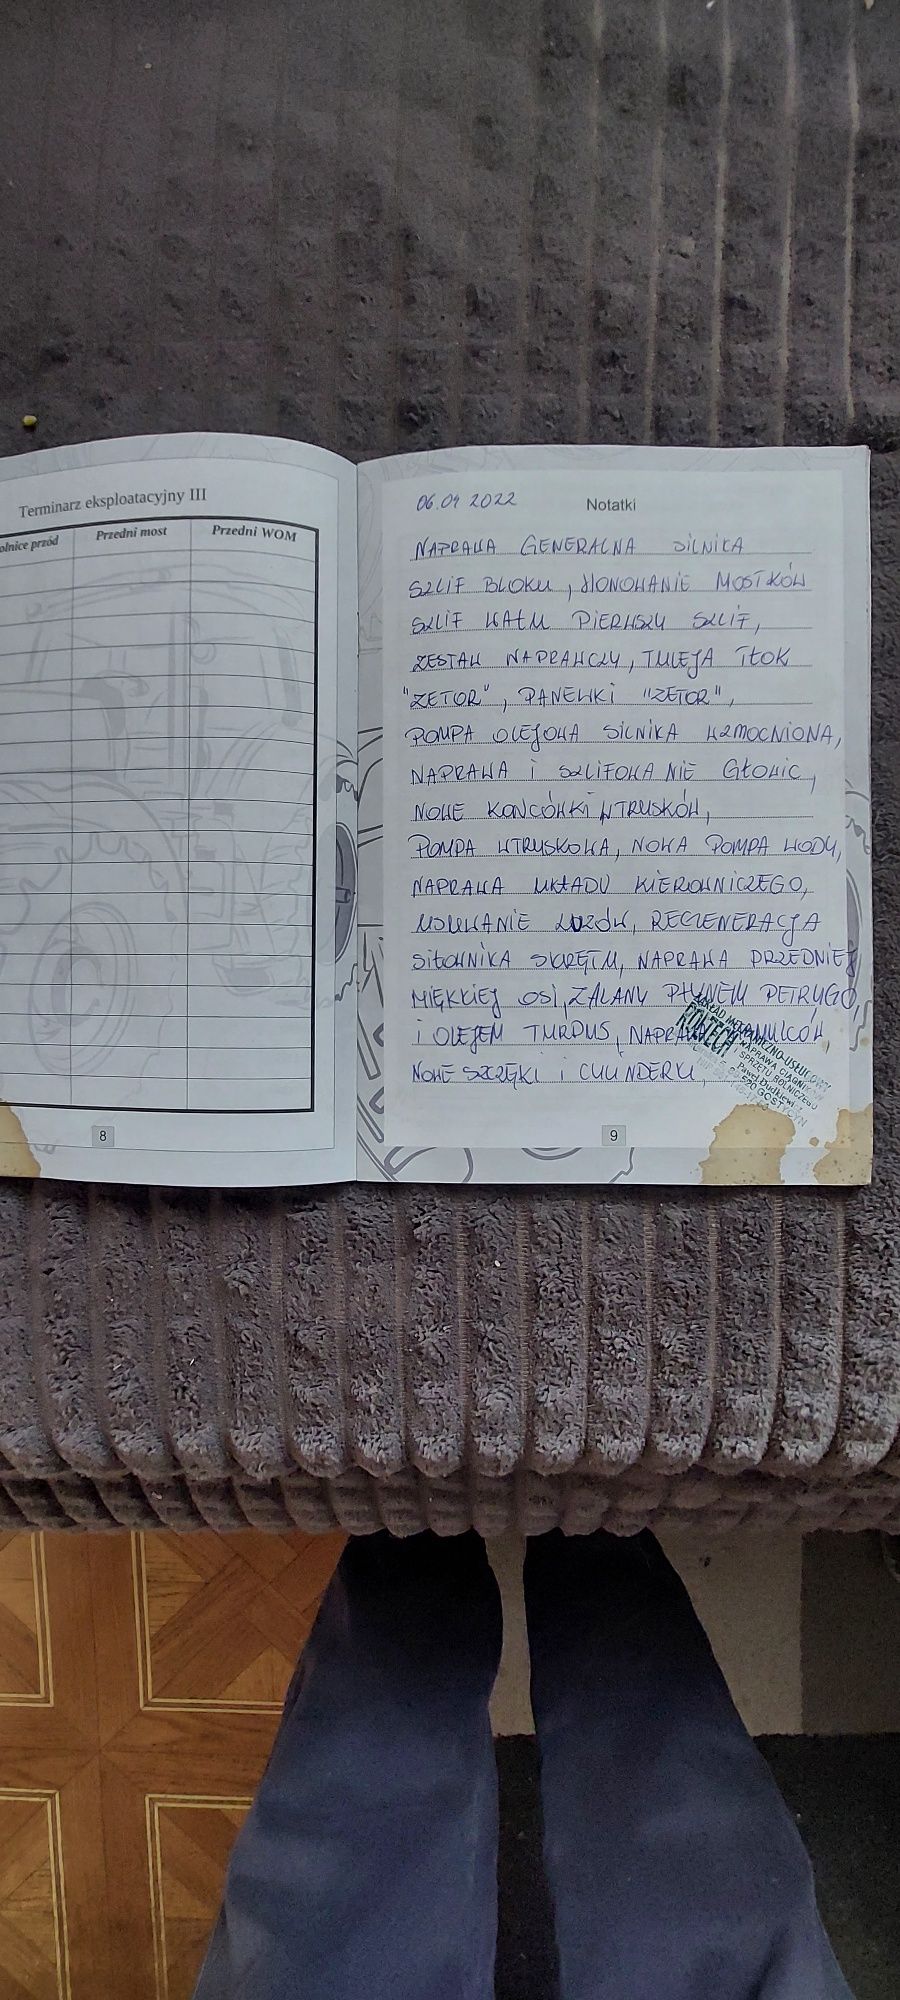 Terminarz eksploatacyjny III
olnice przód Przedni most Przedni WOM
8
06.09 2022 Notatki
NAPRAWA GENERALNA SILNIKA
SZLIF BLOKU, HONOWANIE MOSTKÓW
SZLIF WAŁU PIERWSZY SZLIF,
ZESTAW NAPRAWCZY, TULEJA TŁOK
"ZETOR", PANEWKI "ZETOR",
POMPA OLEJOWA SILNIKA WZMOCNIONA,
NAPRAWA I SZLIFOWANIE GŁOWIC,
NOWE KOŃCÓWKI WTRYSKÓW,
POMPA WTRYSKOWA, NOWA POMPA WODY,
NAPRAWA UKŁADU KIEROWNICZEGO,
USUWANIE LUZÓW, REGENERACJA
SIŁOWNIKA SKRĘTU, NAPRAWA PRZEDNIEJ
MIĘKKIEJ OSI, ZALANY PŁYNEM PETRYGO,
I OLEJEM TURDUS, NAPRAWA HAMULCÓW,
NOWE SZCZĘKI I CYLINDERKI,
ZAKŁAD MECHANICZNO-USŁUGOWY
NAPRAWA CIĄGNIKÓW
I SPRZĘTU ROLNICZEGO
Paweł Dudkiewicz
520 GOSTYCYN
9